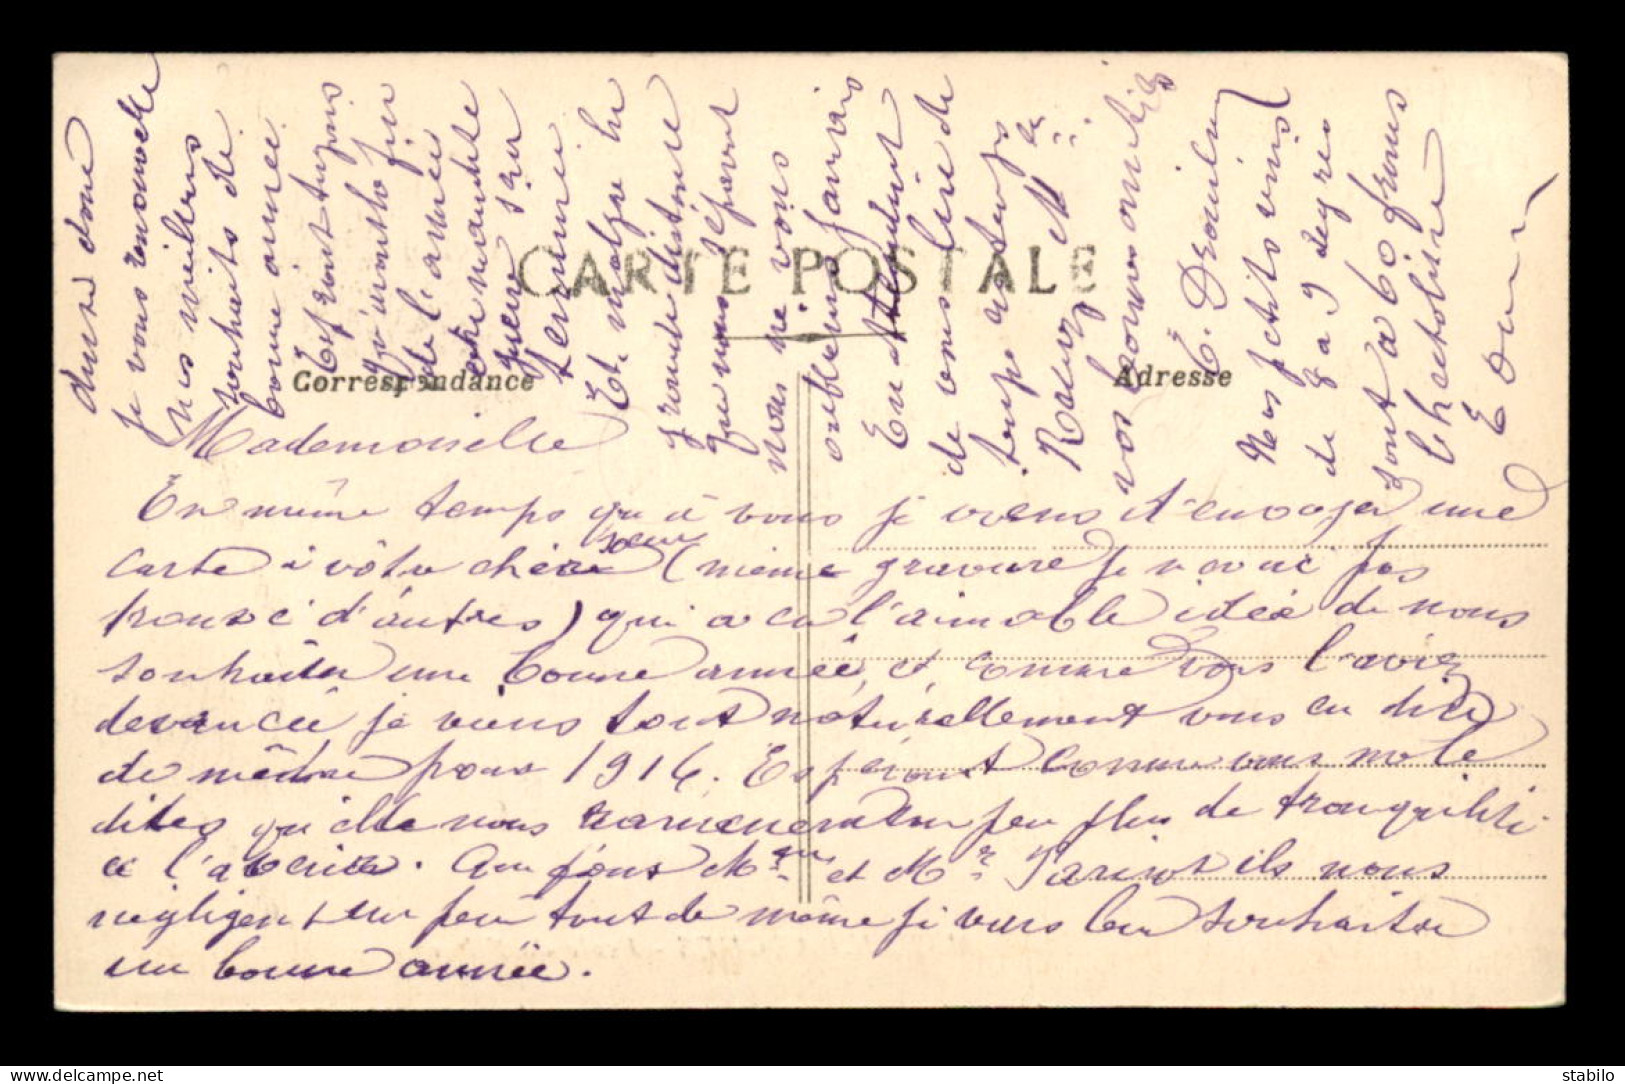 CARTE POSTALE
Correspondance
Adresse
Mademoiselle
En même temps qu'à vous je viens d'envoyer une
carte à vôtre chère soeur (même gravure je n'avai pas
trouvé d'autres) qui a eu l'aimable idée de nous
souhaiter une bonne année, et comme vous l'avez
devancée je viens tout naturellement vous en dire
de même pour 1916. Espérant comme vous me le
dites qu'elle nous ramenera un peu plus de tranquilité
à l'abeille. Quant à Mme et Mr Parinot ils nous
négligent un peu tout de même je vais leur souhaiter
une bonne année.
donc
je vous renouvelle
mes meilleurs
souhaits de
bonne année
Espérant toujours
qu'une fin
de l'année
cette maudite
guerre sera
terminée
Et malgré la
grande distance
que nous sépare
nous ne vous
oublions jamais
En attendant
de vous lire de
temps en temps
Recevez Mlle
vos bonnes amitiés
E. Drouin
Mes petits vins
de 8 à 9 degrés
sont à 60 francs
l'hectolitre
E Drouin
stabilo